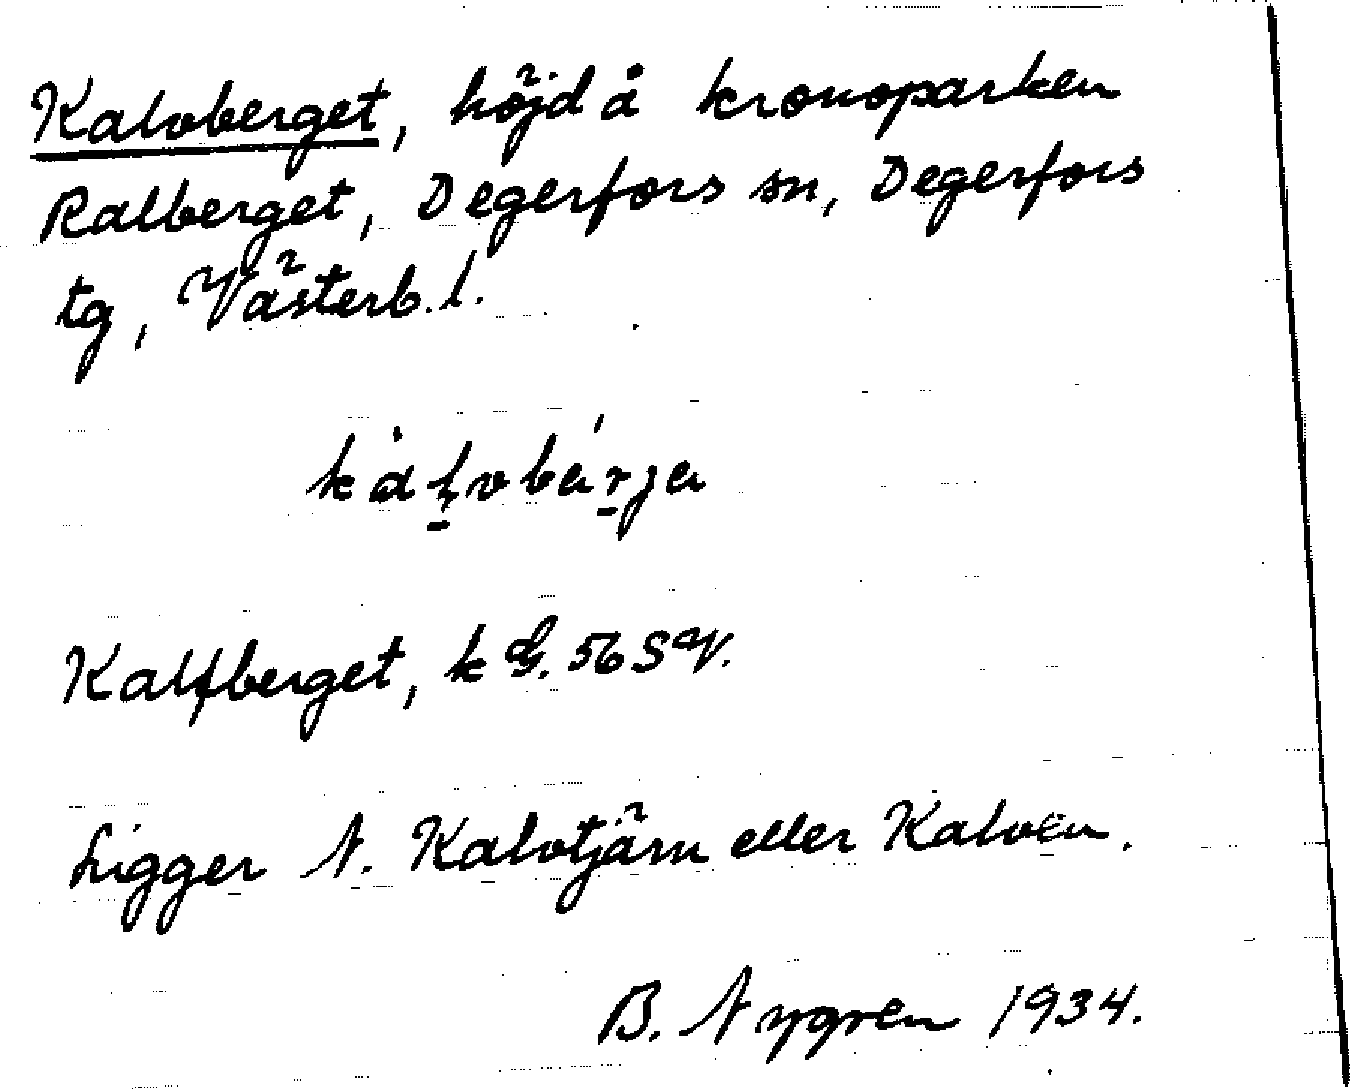 Kalvberget, höjd å kronoparken
Ralberget, Degerfors sn, Degerfors
tg, Västerb. l.
kȧḷvbárja
Kalfberget, k G. 56 SV.
Ligger N. Kalvtjärn eller Kalven.
B. Nygren 1934.